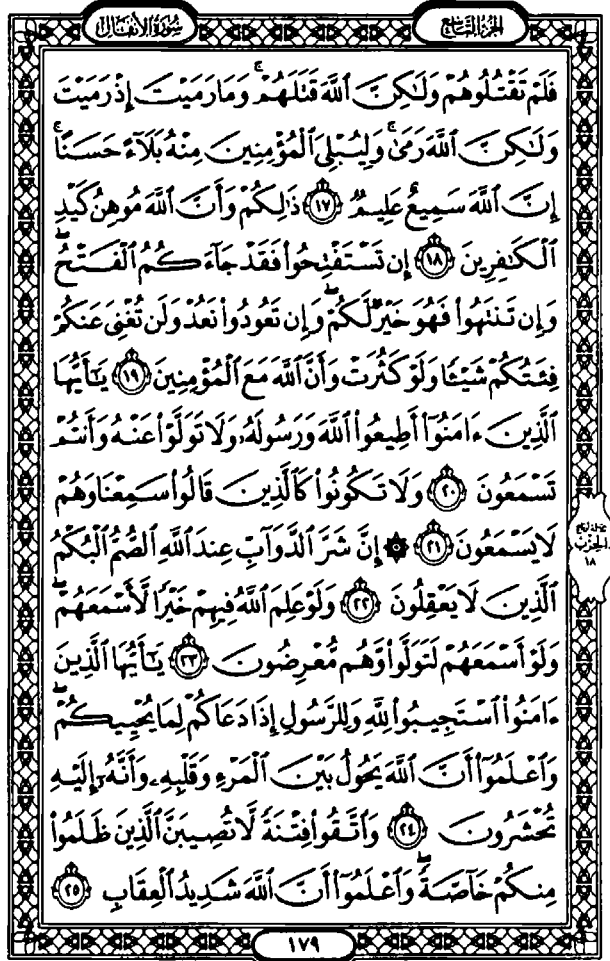 سُورَةُ الأَنفَال
الجُزْءُ التَّاسِع
فَلَمْ تَقْتُلُوهُمْ وَلَٰكِنَّ ٱللَّهَ قَتَلَهُمْ ۚ وَمَا رَمَيْتَ إِذْ رَمَيْتَ
وَلَٰكِنَّ ٱللَّهَ رَمَىٰ ۚ وَلِيُبْلِىَ ٱلْمُؤْمِنِينَ مِنْهُ بَلَآءً حَسَنًا ۚ
إِنَّ ٱللَّهَ سَمِيعٌ عَلِيمٌ ١٧ ذَٰلِكُمْ وَأَنَّ ٱللَّهَ مُوهِنُ كَيْدِ
ٱلْكَٰفِرِينَ ١٨ إِن تَسْتَفْتِحُوا۟ فَقَدْ جَآءَكُمُ ٱلْفَتْحُ ۖ
وَإِن تَنتَهُوا۟ فَهُوَ خَيْرٌ لَّكُمْ ۖ وَإِن تَعُودُوا۟ نَعُدْ وَلَن تُغْنِىَ عَنكُمْ
فِئَتُكُمْ شَيْـًٔا وَلَوْ كَثُرَتْ وَأَنَّ ٱللَّهَ مَعَ ٱلْمُؤْمِنِينَ ١٩ يَٰٓأَيُّهَا
ٱلَّذِينَ ءَامَنُوٓا۟ أَطِيعُوا۟ ٱللَّهَ وَرَسُولَهُۥ وَلَا تَوَلَّوْا۟ عَنْهُ وَأَنتُمْ
تَسْمَعُونَ ٢٠ وَلَا تَكُونُوا۟ كَٱلَّذِينَ قَالُوا۟ سَمِعْنَا وَهُمْ
لَا يَسْمَعُونَ ٢١ ۞ إِنَّ شَرَّ ٱلدَّوَآبِّ عِندَ ٱللَّهِ ٱلصُّمُّ ٱلْبُكْمُ
ٱلَّذِينَ لَا يَعْقِلُونَ ٢٢ وَلَوْ عَلِمَ ٱللَّهُ فِيهِمْ خَيْرًا لَّأَسْمَعَهُمْ ۖ
وَلَوْ أَسْمَعَهُمْ لَتَوَلَّوا۟ وَّهُم مُّعْرِضُونَ ٢٣ يَٰٓأَيُّهَا ٱلَّذِينَ
ءَامَنُوا۟ ٱسْتَجِيبُوا۟ لِلَّهِ وَلِلرَّسُولِ إِذَا دَعَاكُمْ لِمَا يُحْيِيكُمْ ۖ
وَٱعْلَمُوٓا۟ أَنَّ ٱللَّهَ يَحُولُ بَيْنَ ٱلْمَرْءِ وَقَلْبِهِۦ وَأَنَّهُۥٓ إِلَيْهِ
تُحْشَرُونَ ٢٤ وَٱتَّقُوا۟ فِتْنَةً لَّا تُصِيبَنَّ ٱلَّذِينَ ظَلَمُوا۟
مِنكُمْ خَآصَّةً ۖ وَٱعْلَمُوٓا۟ أَنَّ ٱللَّهَ شَدِيدُ ٱلْعِقَابِ ٢٥
الحِزْب
١٨
١٧٩